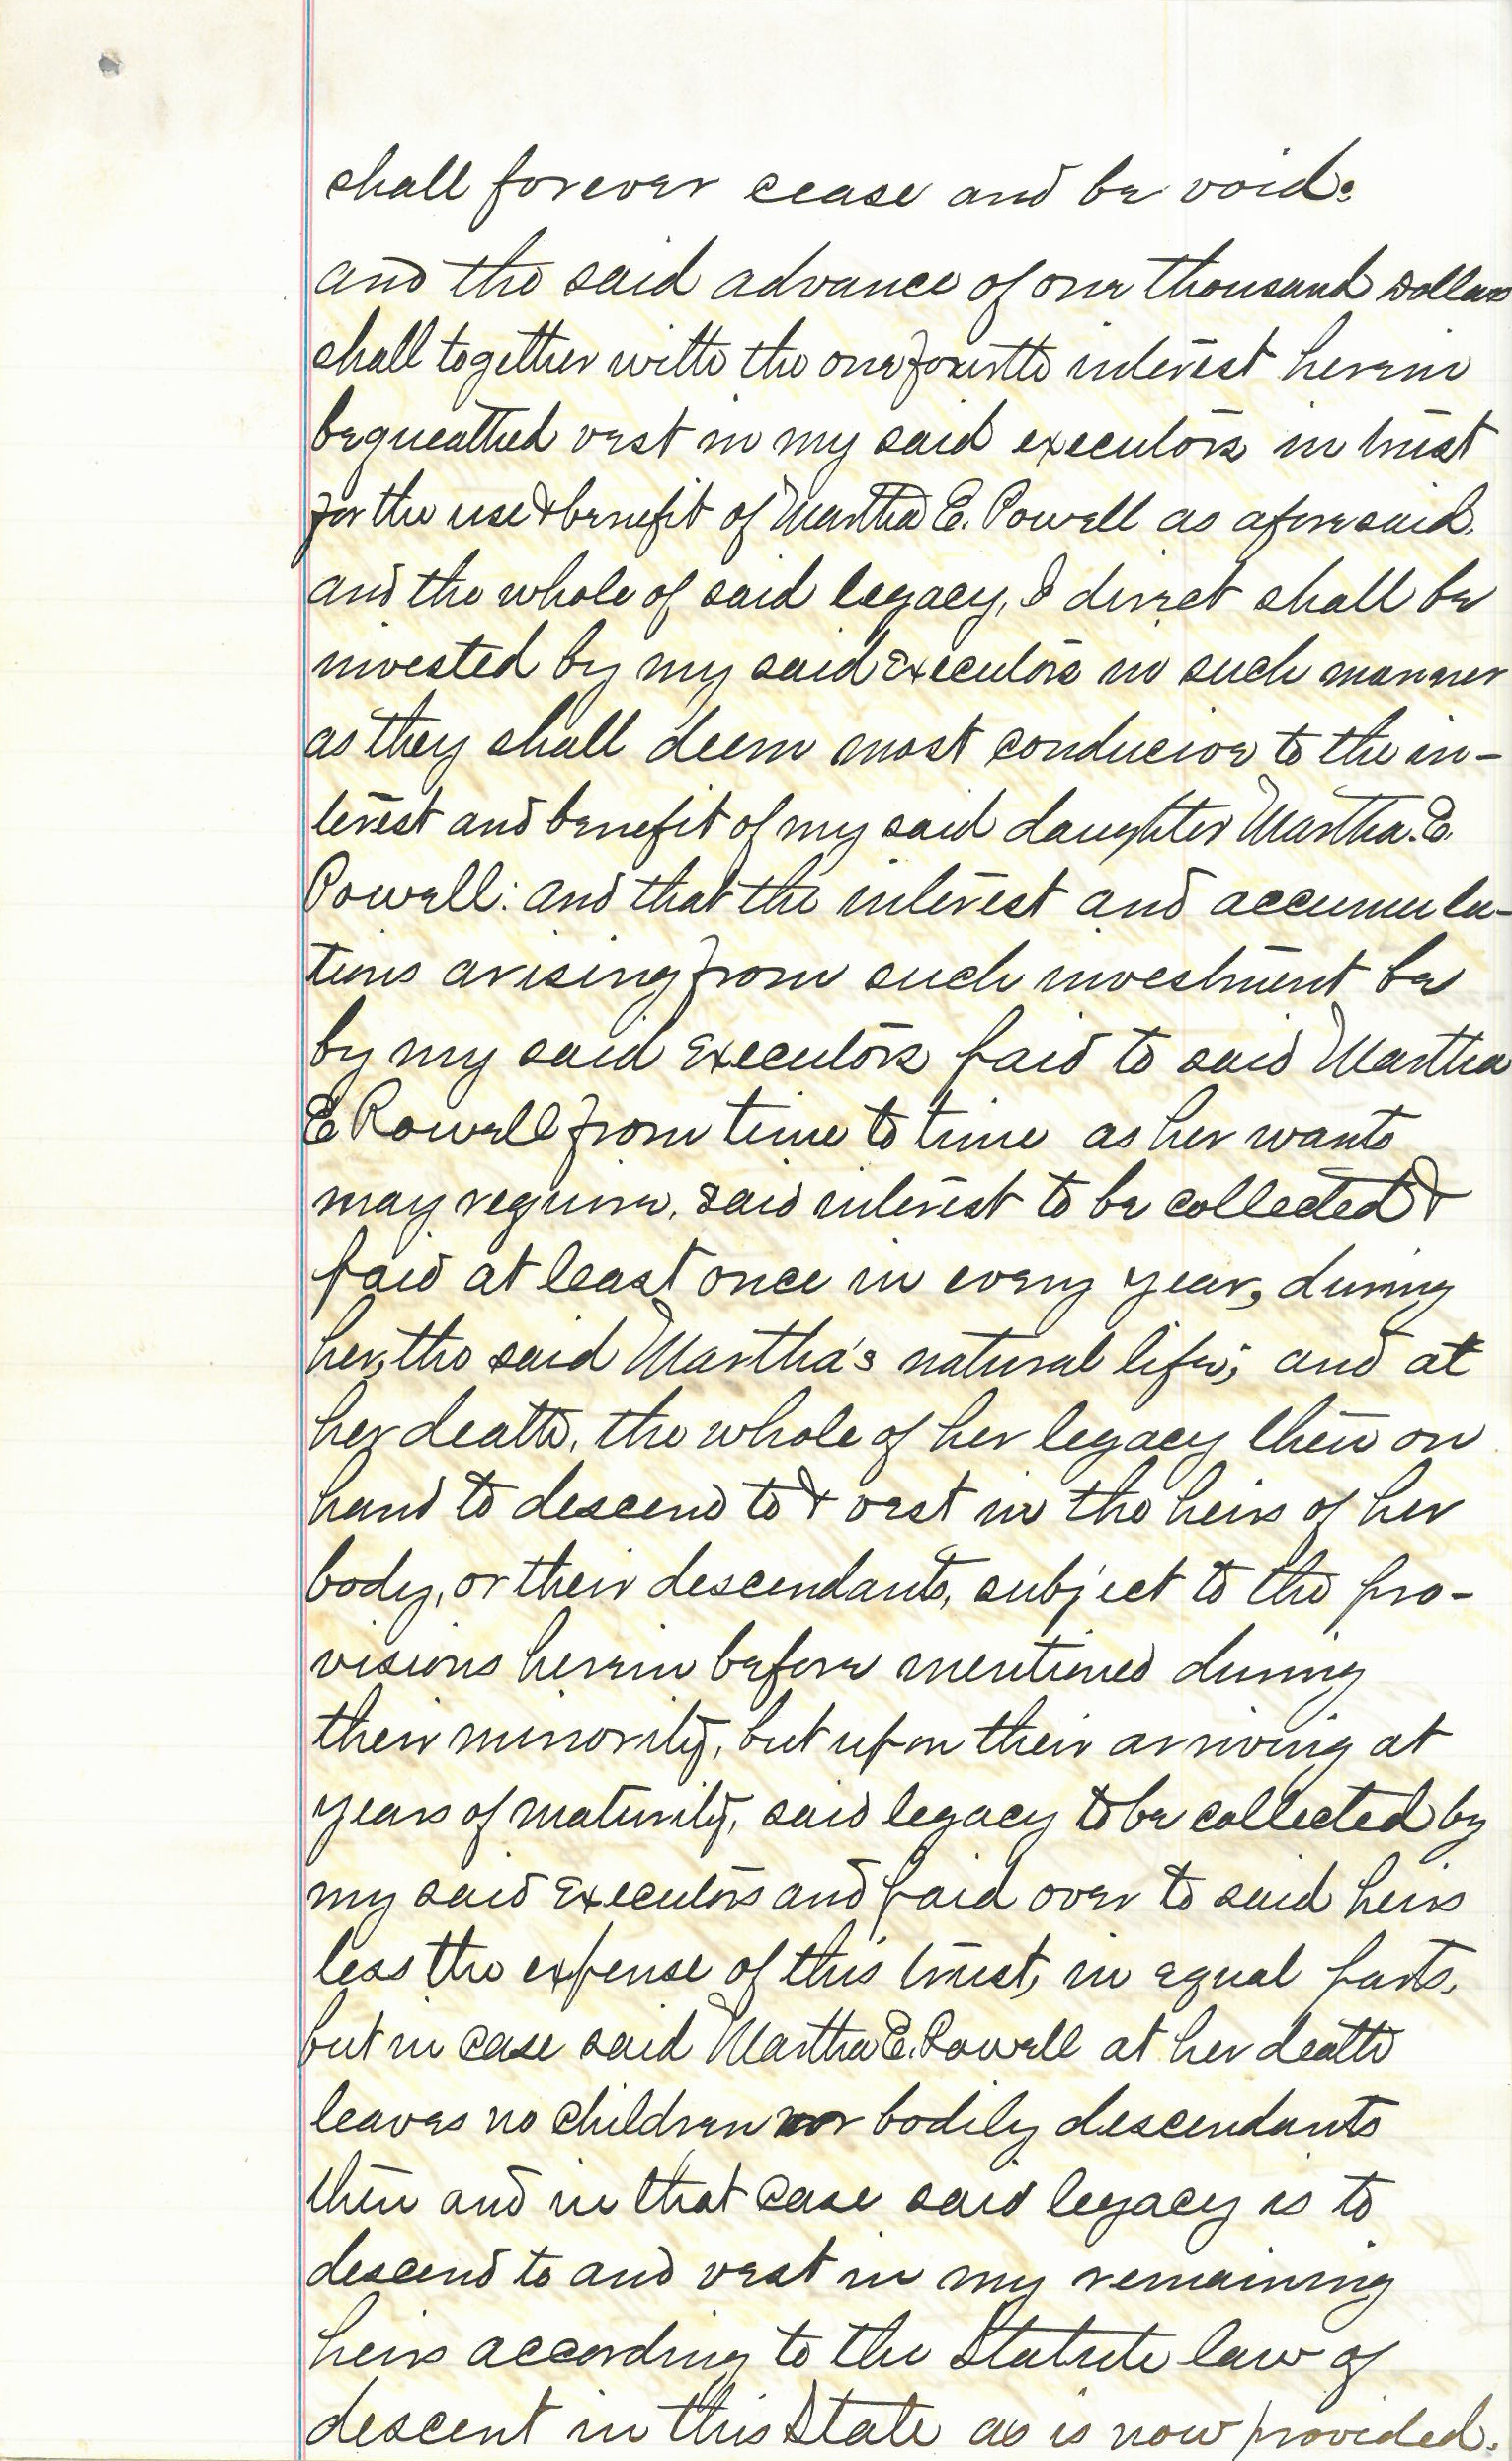 shall forever cease and be void:
and the said advance of one thousand dollars
shall together with the one fourth interest herein
bequeathed vest in my said executors in trust
for the use & benefit of Martha E. Powell as aforesaid.
and the whole of said legacy, I direct shall be
invested by my said Executors in such manner
as they shall deem most conducive to the in-
terest and benefit of my said daughter Martha. E.
Powell: and that the interest and accumula-
tions arising from such investment be
by my said Executors paid to said Martha
E Powell from time to time as her wants
may require, said interest to be collected &
paid at least once in every year, during
her, the said Martha's natural life; and at
her death, the whole of her legacy then on
hand to descend to & vest in the heirs of her
body, or their descendants, subject to the pro-
visions herein before mentioned during
their minority, but upon their arriving at
years of maturity, said legacy to be collected by
my said Executors and paid over to said heirs
less the expense of this trust, in equal parts,
but in case said Martha E. Powell at her death
leaves no children nor bodily descendants
then and in that case said legacy is to
descend to and vest in my remaining
heirs according to the Statute law of
descent in this State as is now provided.